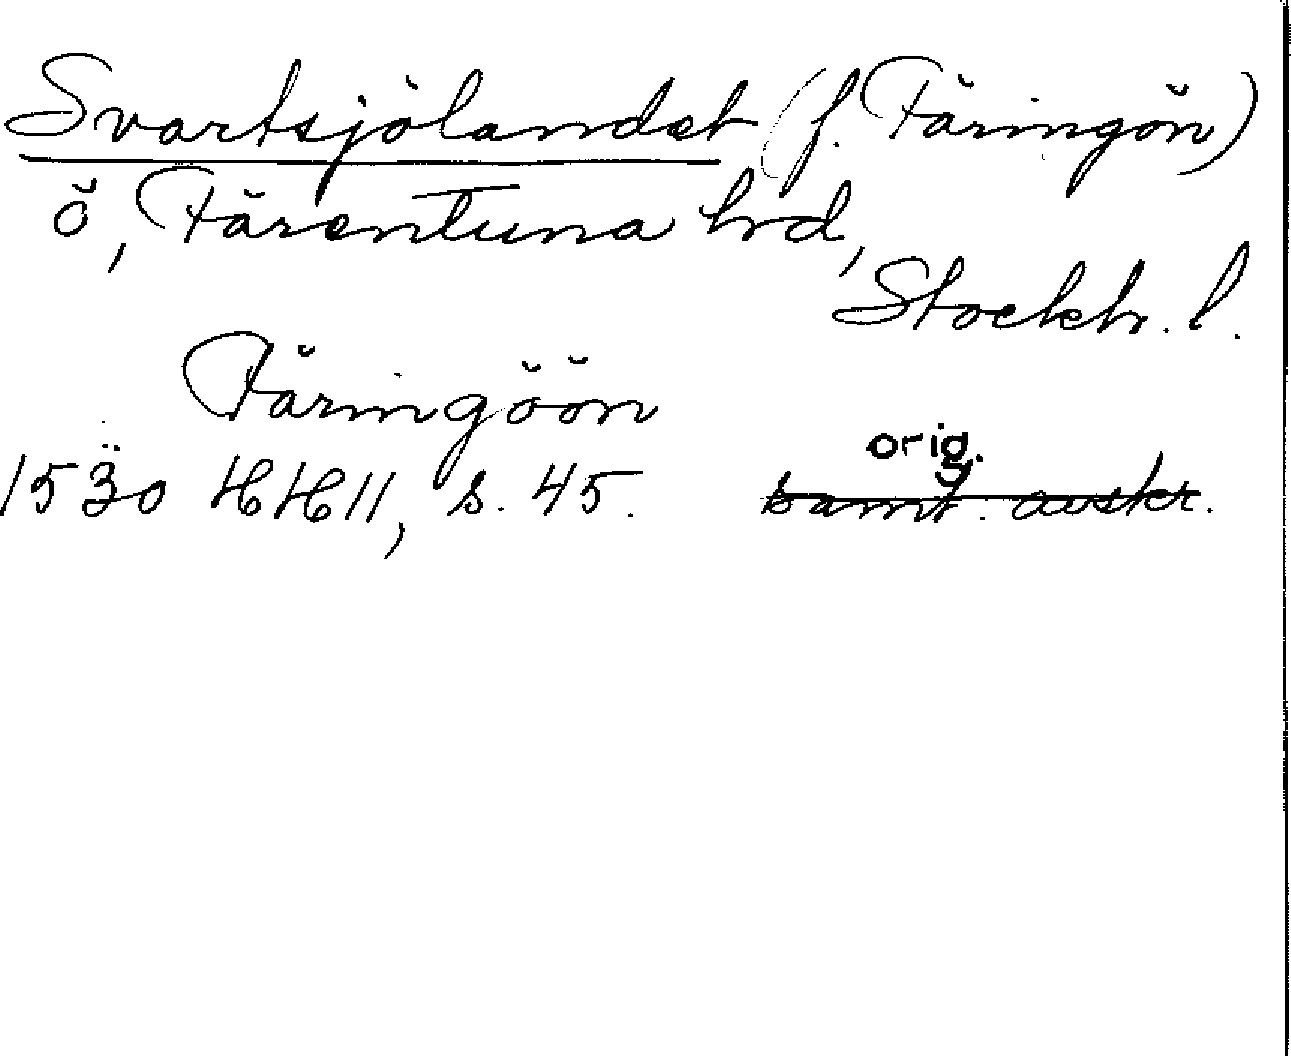 Svartsjölandet (f. Färingön)
ö, Färentuna hrd,
Stockh. l.
Färingöön
orig.
1530 HH 11, s. 45. samt. avskr.